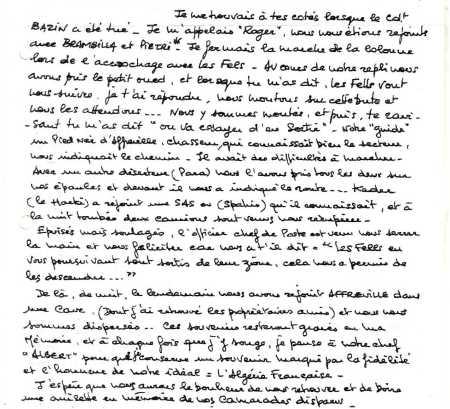 Je me trouvais à tes cotés lorsque le Cdt
BAZIN a été tué - Je m'appelais "Roger", nous nous étions rejoints
avec BRAMBILLA et PIETRI - Je fermais la marche de la colonne
lors de l'accrochage avec les Fels - Au cours de notre repli nous
avons pris le petit oued, et lorsque tu m'as dit, les Fells vont
nous suivre, je t'ai répondu, nous montons sur cette bute et
nous les attendons... Nous y sommes montés, et puis, te
tu m'as dit "on va essayer d'en sortir" - notre "guide"
un Pied Noir d'Affreville, chasseur, qui connaissait bien le secteur,
nous indiquait le chemin - Il avait des difficultés à marcher -
Avec un autre déserteur (Para) nous l'avons pris tous les deux sur
nos épaules et devant il nous a indiqué la route --- Kader
(le Harki) a rejoint une SAS ou (Spahis) qu'il connaissait, et à
la nuit tombée deux camions sont venus nous récupérer -
Epuisés mais soulagés, l'officier chef de Poste est venu nous serrer
la main et nous féliciter car nous a t'il dit = "Les Fells en
vous poursuivant sont sortis de leur zône, cela nous a permis de
les descendre..."
De là, de nuit, le lendemain nous avons rejoint AFFREVILLE dans
une Cave, (Dont j'ai retrouvé les propriétaires amis) et nous nous
sommes dispersés -- Ces souvenirs resteront gravés en ma
Mémoire, et à chaque fois que j'y songe, je pense à notre chef
"ALBERT" pour qui j'conserve un souvenir marqué par la fidélité
et l'honneur de notre idéal = L'Algérie Française -
J'espère que nous aurons le bonheur de nous retrouver et de boire
une anisette en mémoire de nos Camarades disparus